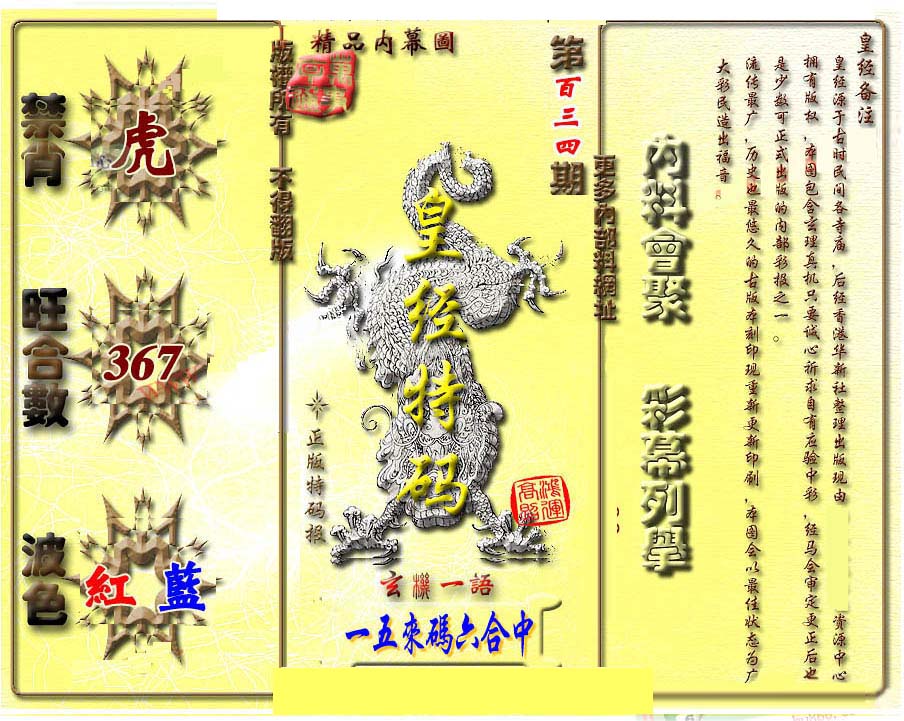 精品内幕圖
版權所有 不得翻版
第百三四期
更多內部料網址
禁肖
虎
旺合數
367
波色
紅 藍
皇经特码
正版特码报
鴻運高照
玄機一語
一五來碼六合中
內料會聚
彩幕列舉
皇经备注
皇经源于古时民间各寺庙,后经香港华新社整理出版现由 资源中心
拥有版权,本图包含玄理真机只要诚心祈求自有应验中彩,经马会审定更正后也
是少数可正式出版的内部彩报之一。
流传最广,历史也最悠久的古版本刻印现重新更新印刷,本图会以最佳状态为广
大彩民造出福音